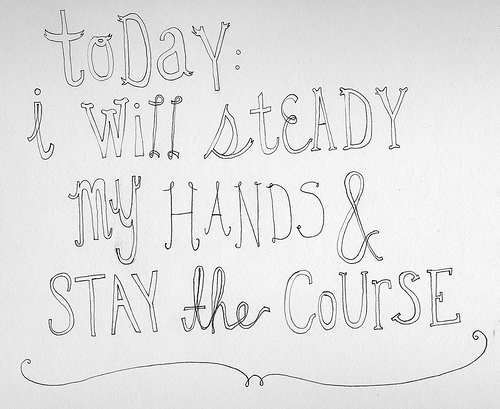 toDaY:
i will stEADY
my HANDS &
STAY the CoUrSE